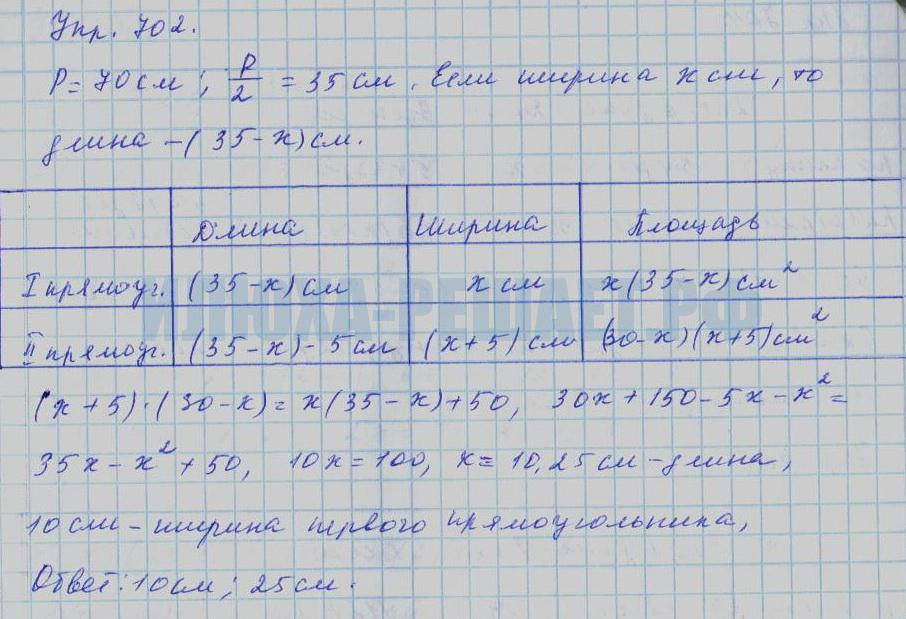 Упр. 702.
P = 70 см; P/2 = 35 см. Если ширина x см, то
длина – (35 - x) см.
Длина Ширина Площадь
I прямоуг. (35 - x) см x см x(35 - x) см²
II прямоуг. (35 - x) - 5 см (x + 5) см (30 - x)(x + 5) см²
ИЛЮХА-РЕШАЕТ.РФ
(x + 5)·(30 - x) = x(35 - x) + 50, 30x + 150 - 5x - x² =
35x - x² + 50, 10x = 100, x = 10, 25 см - длина,
10 см - ширина первого прямоугольника,
Ответ: 10 см; 25 см.